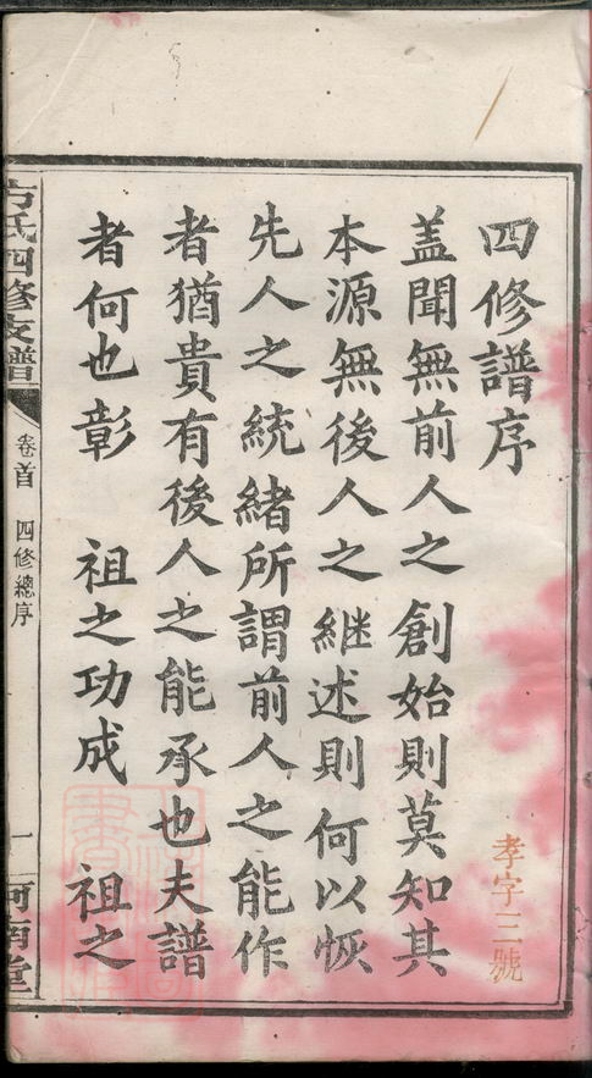 四修譜序
孝字三號
盖聞無前人之創始則莫知其
本源無後人之継述則何以恢
先人之統緒所謂前人之能作
者猶貴有後人之能承也夫譜
者何也彰　祖之功成　祖之
方氏四修支譜
卷首　四修總序
一
河南堂